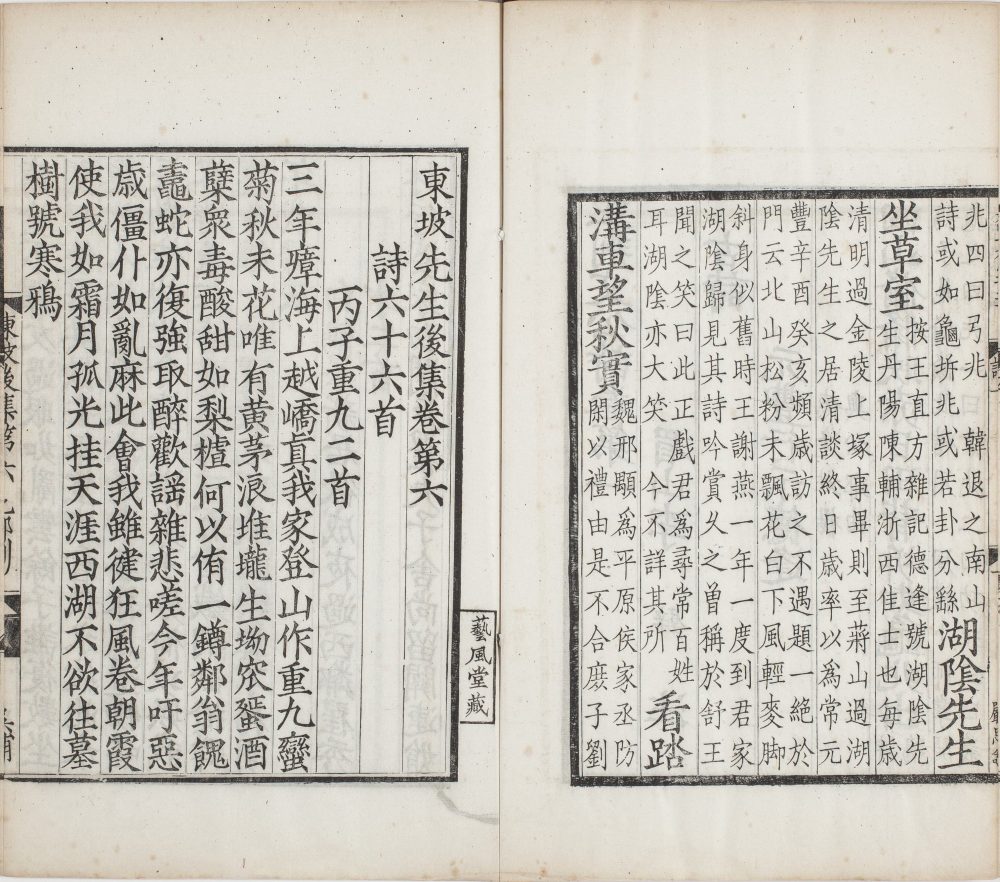 兆四曰弓兆　韓退之南山
詩或如龜坼兆或若卦分繇
湖陰先生
坐草室
按王直方雜記德逢號湖陰先
生丹陽陳輔浙西佳士也每歲
清明過金陵上塚事畢則至蔣山過湖
陰先生之居清談終日歲率以為常元
豐辛酉癸亥頻歲訪之不遇題一絶於
門云北山松粉未飄花白下風輕麥脚
斜身似舊時王謝燕一年一度到君家
湖陰歸見其詩吟賞久之曽稱於舒王
聞之笑曰此正戲君為尋常百姓
耳湖陰亦大笑　今不詳其所
看踏
溝車望秋實
魏邢顒為平原侯家丞防
閑以禮由是不合庻子劉
藝風堂藏
東坡先生後集卷第六
詩六十六首
丙子重九二首
三年瘴海上越嶠真我家登山作重九蠻
菊秋未花唯有黄茅浪堆壠生坳窊蜑酒
蘖衆毒酸甜如梨樝何以侑一罇鄰翁餽
䵷蛇亦復強取醉歡謡雜悲嗟今年吁惡
歳僵仆如亂麻此㑹我雖健狂風卷朝霞
使我如霜月孤光挂天涯西湖不欲往墓
樹號寒鴉
東坡後集第六